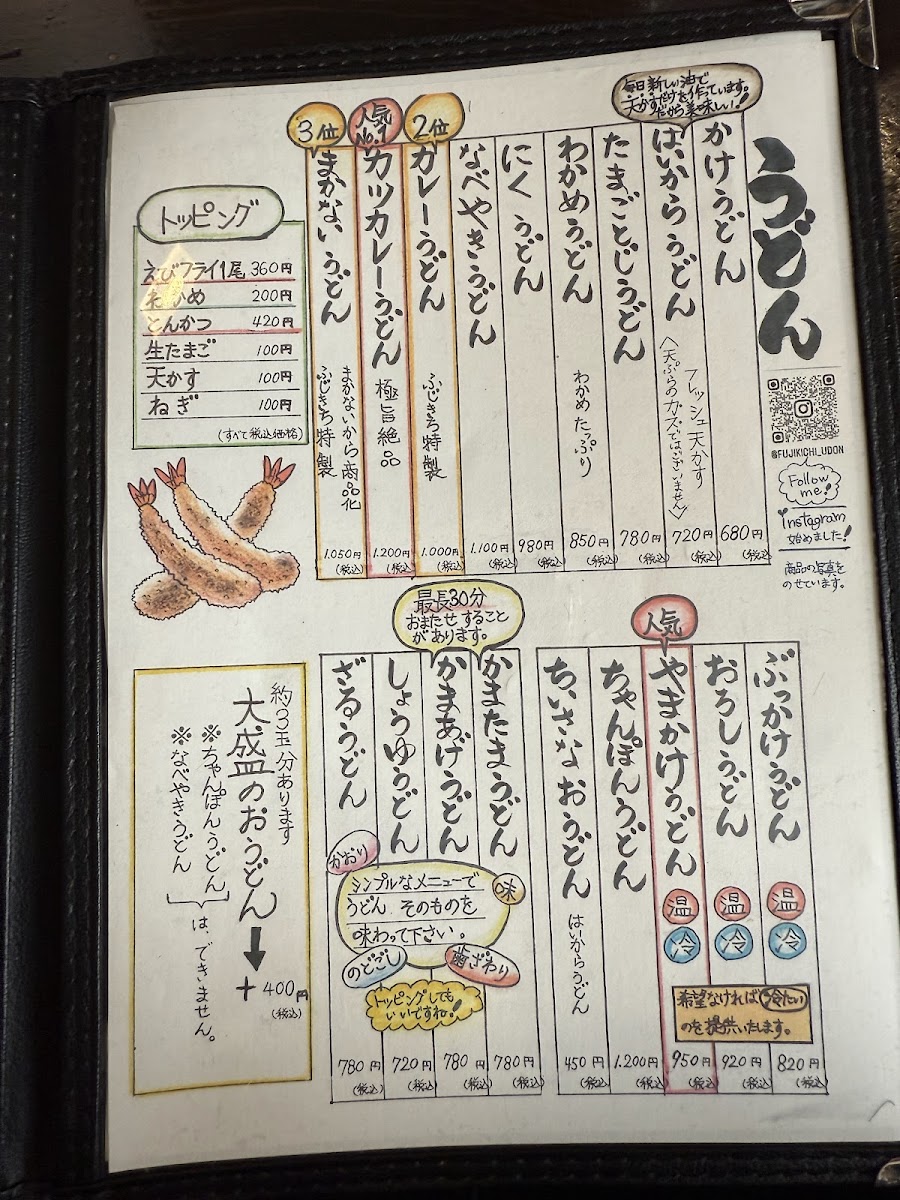 うどん
毎日新しい油で
天かすだけを作っています。
だから美味しい!!
かけうどん
680円
(税込)
はいからうどん
フレッシュ天かす
〈天ぷらのカスではございません〉
720円
(税込)
たまごとじうどん
780円
(税込)
わかめうどん
わかめたっぷり
850円
(税込)
にくうどん
980円
(税込)
なべやきうどん
1.100円
(税込)
2位
カレーうどん
ふじきち特製
1.000円
(税込)
人気
No.1
カツカレーうどん
極旨絶品
1.200円
(税込)
3位
まかないうどん
まかないから商品化
ふじきち特製
1.050円
(税込)
トッピング
えびフライ1尾 360円
わかめ 200円
とんかつ 420円
生たまご 100円
天かす 100円
ねぎ 100円
(すべて税込価格)
@FUJIKICHI_UDON
Follow
me!
instagram
始めました!
商品の写真を
のせています。
ぶっかけうどん
温
冷
820円
(税込)
おろしうどん
温
冷
920円
(税込)
人気
やまかけうどん
温
冷
950円
(税込)
希望なければ冷たい
のを提供いたします。
ちゃんぽんうどん
1.200円
(税込)
ちいさなおうどん
はいからうどん
450円
(税込)
最長30分
おまたせすること
があります。
かまたまうどん
780円
(税込)
かまあげうどん
780円
(税込)
しょうゆうどん
720円
(税込)
ざるうどん
780円
(税込)
かおり
味
シンプルなメニューで
うどんそのものを
味わって下さい。
のどごし
歯ざわり
トッピングしても
いいですね!
約3玉分あります
大盛のおうどん
+400円
(税込)
※ちゃんぽんうどん
※なべやきうどん
は、できません。